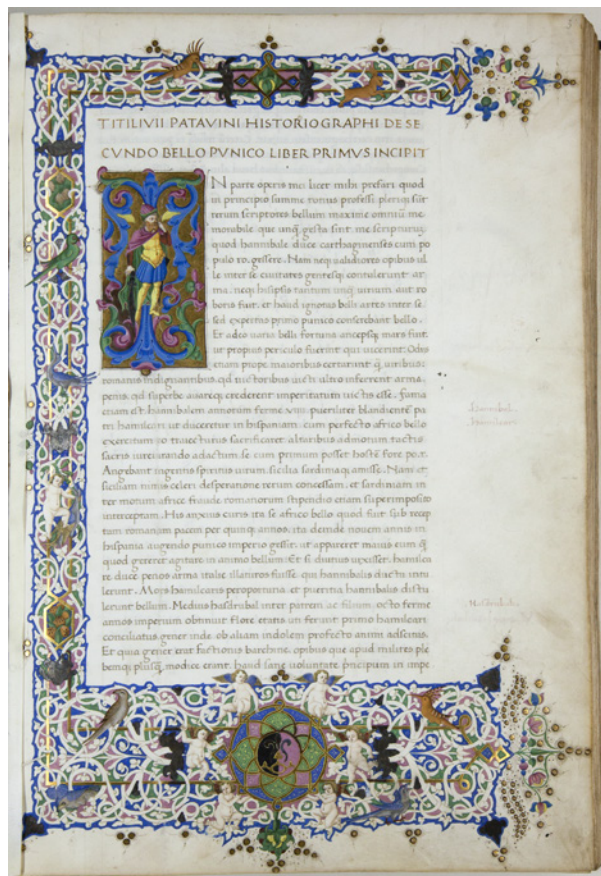 3
TITI LIVII PATAVINI HISTORIOGRAPHI DE SE
CVNDO BELLO PVNICO LIBER PRIMVS INCIPIT
N parte operis mei licet mihi prefari quod
in principio summe totius professi pleriq; sūt
rerum scriptores bellum maxime omniū me
morabile que unq̄ gesta sint me scripturū
quod hannibale duce carthaginenses cum po
pulo ro. gessere. Nam neq; ualidiores opibus ul
le inter se ciuitates gentesq; contulerunt ar
ma. neq; his ipsis tantum unq̄ uirium aut ro
boris fuit. et haud ignotas belli artes inter se
sed expertas primo punico conserebant bello.
Et adeo uaria belli fortuna ancepsq; mars fuit
ut propius periculo fuerint qui uicerint. Odiis
etiam prope maioribus certarunt q̄ uiribus:
romanis indignantibus qd uictoribus uicti ultro inferrent arma.
penis qd superbe auareq; crederent imperitatum uictis esse. fama
etiam est hannibalem annorum ferme .viiii. pueriliter blandientē pa
tri hamilcari ut duceretur in hispaniam. cum perfecto africo bello
exercitum eo traiecturus sacrificaret. altaribus admotum tactis
sacris iureiurando adactum. se cum primum posset hostē fore po.r.
Angebant ingentis spiritus uirum. sicilia sardiniaq; amisse. Nam et
siciliam nimis celeri desperatione rerum concessam. et sardiniam in
ter motum africe fraude romanorum stipendio etiam superimposito
interceptam. His anxius curis ita se africo bello quod fuit sub recep
tam romanam pacem per quinq; annos. ita deinde nouem annis in
hispania augendo punico imperio gessit. ut appareret maius eum q̄
quod gereret agitare in animo bellum. Et si diutius uixisset. hamilca
re duce penos arma italie illaturos fuisse. qui hannibalis ductu intu
lerunt. Mors hamilcaris peroportuna. et pueritia hannibalis distu
lerunt bellum. Medius hasdrubal inter patrem ac filium. octo ferme
annos imperium obtinuit flore etatis ut ferunt primo hamilcari
conciliatus. gener inde ob aliam indolem profecto animi adscitus.
Et quia gener erat factionis barchine. opibus que apud milites ple
bemq; plusq̄ modice erant. haud sane uoluntate principum in impe
Hannibal
Hamilcar
Hasdrubal